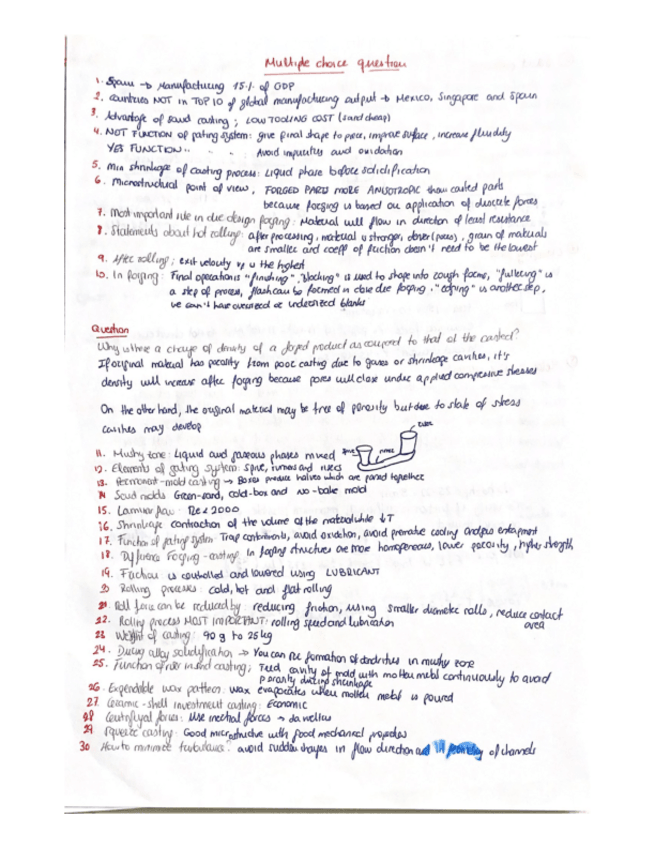 Multiple choice question
1. Spain → Manufacturing 15% of GDP
2. Countries NOT in TOP 10 of global manufacturing output → Mexico, Singapore and Spain
3. Advantage of sand casting; LOW TOOLING COST (sand cheap)
4. NOT FUNCTION of gating system: give final shape to piece, improve surface, increase fluidity
YES FUNCTION " " " Avoid impurities and oxidation
5. Min shrinkage of casting process: Liquid phase before solidification
6. Microstructural point of view, FORGED PARTS MORE ANISOTROPIC than casted parts
because forging is based on application of discrete forces
7. Most important rule in die design forging: Material will flow in direction of least resistance
8. Statements about hot rolling: after processing, material is stronger, denser (pores), grain of materials
are smaller and coeff of friction doesn't need to be the lowest
9. After rolling; exit velocity is the highest
10. In forging: Final operation is "finishing", "blocking" is used to shape into rough forms, "fullering" is
a step of process, flash can be formed in close die forging. "edging" is another step,
we can't have oversized or undersized blanks
Question
Why is there a change of density of a forged product as compared to that of the casted?
If original material has porosity from poor casting due to gases or shrinkage cavities, it's
density will increase after forging because pores will close under applied compressive stresses
On the other hand, the original material may be free of porosity but due to state of stress
cavities may develop
11. Mushy zone: Liquid and gaseous phases mixed
12. Elements of gating system: sprue, runners and risers
13. Permanent-mold casting → Boxes produce halves which are pored together
14 Sand molds Green-sand, cold-box and no-bake mold
15. Laminar flow - Re < 2000
16. Shrinkage contraction of the volume of the material while ↓T
17. Function of gating system Trap contaminants, avoid oxidation, avoid premature cooling and gas entrapment
18. Difference Forging - casting: In forging structures are more homogeneous, lower porosity, higher strength
19. Friction is controlled and lowered using LUBRICANT
20 Rolling processes: cold, hot and flat rolling
21. Roll force can be reduced by: reducing friction, using smaller diameter rolls, reduce contact
area
22. Rolling process MOST IMPORTANT: rolling speed and lubrication
23 Weight of casting: 90 g to 25 kg
24. During alloy solidification → You can see formation of dendrites in mushy zone
25. Function of riser in sand casting; Feed cavity of mold with molten metal continuously to avoid
porosity during shrinkage
26. Expendable wax pattern. Wax evaporates when molten metal is poured
27. Ceramic-shell investment casting: Economic
28 Centrifugal forces: Use inertial forces →
29 Squeeze casting: Good microstructure with good mechanical properties
30 How to minimize turbulence? avoid sudden changes in flow direction and in geometry of channels